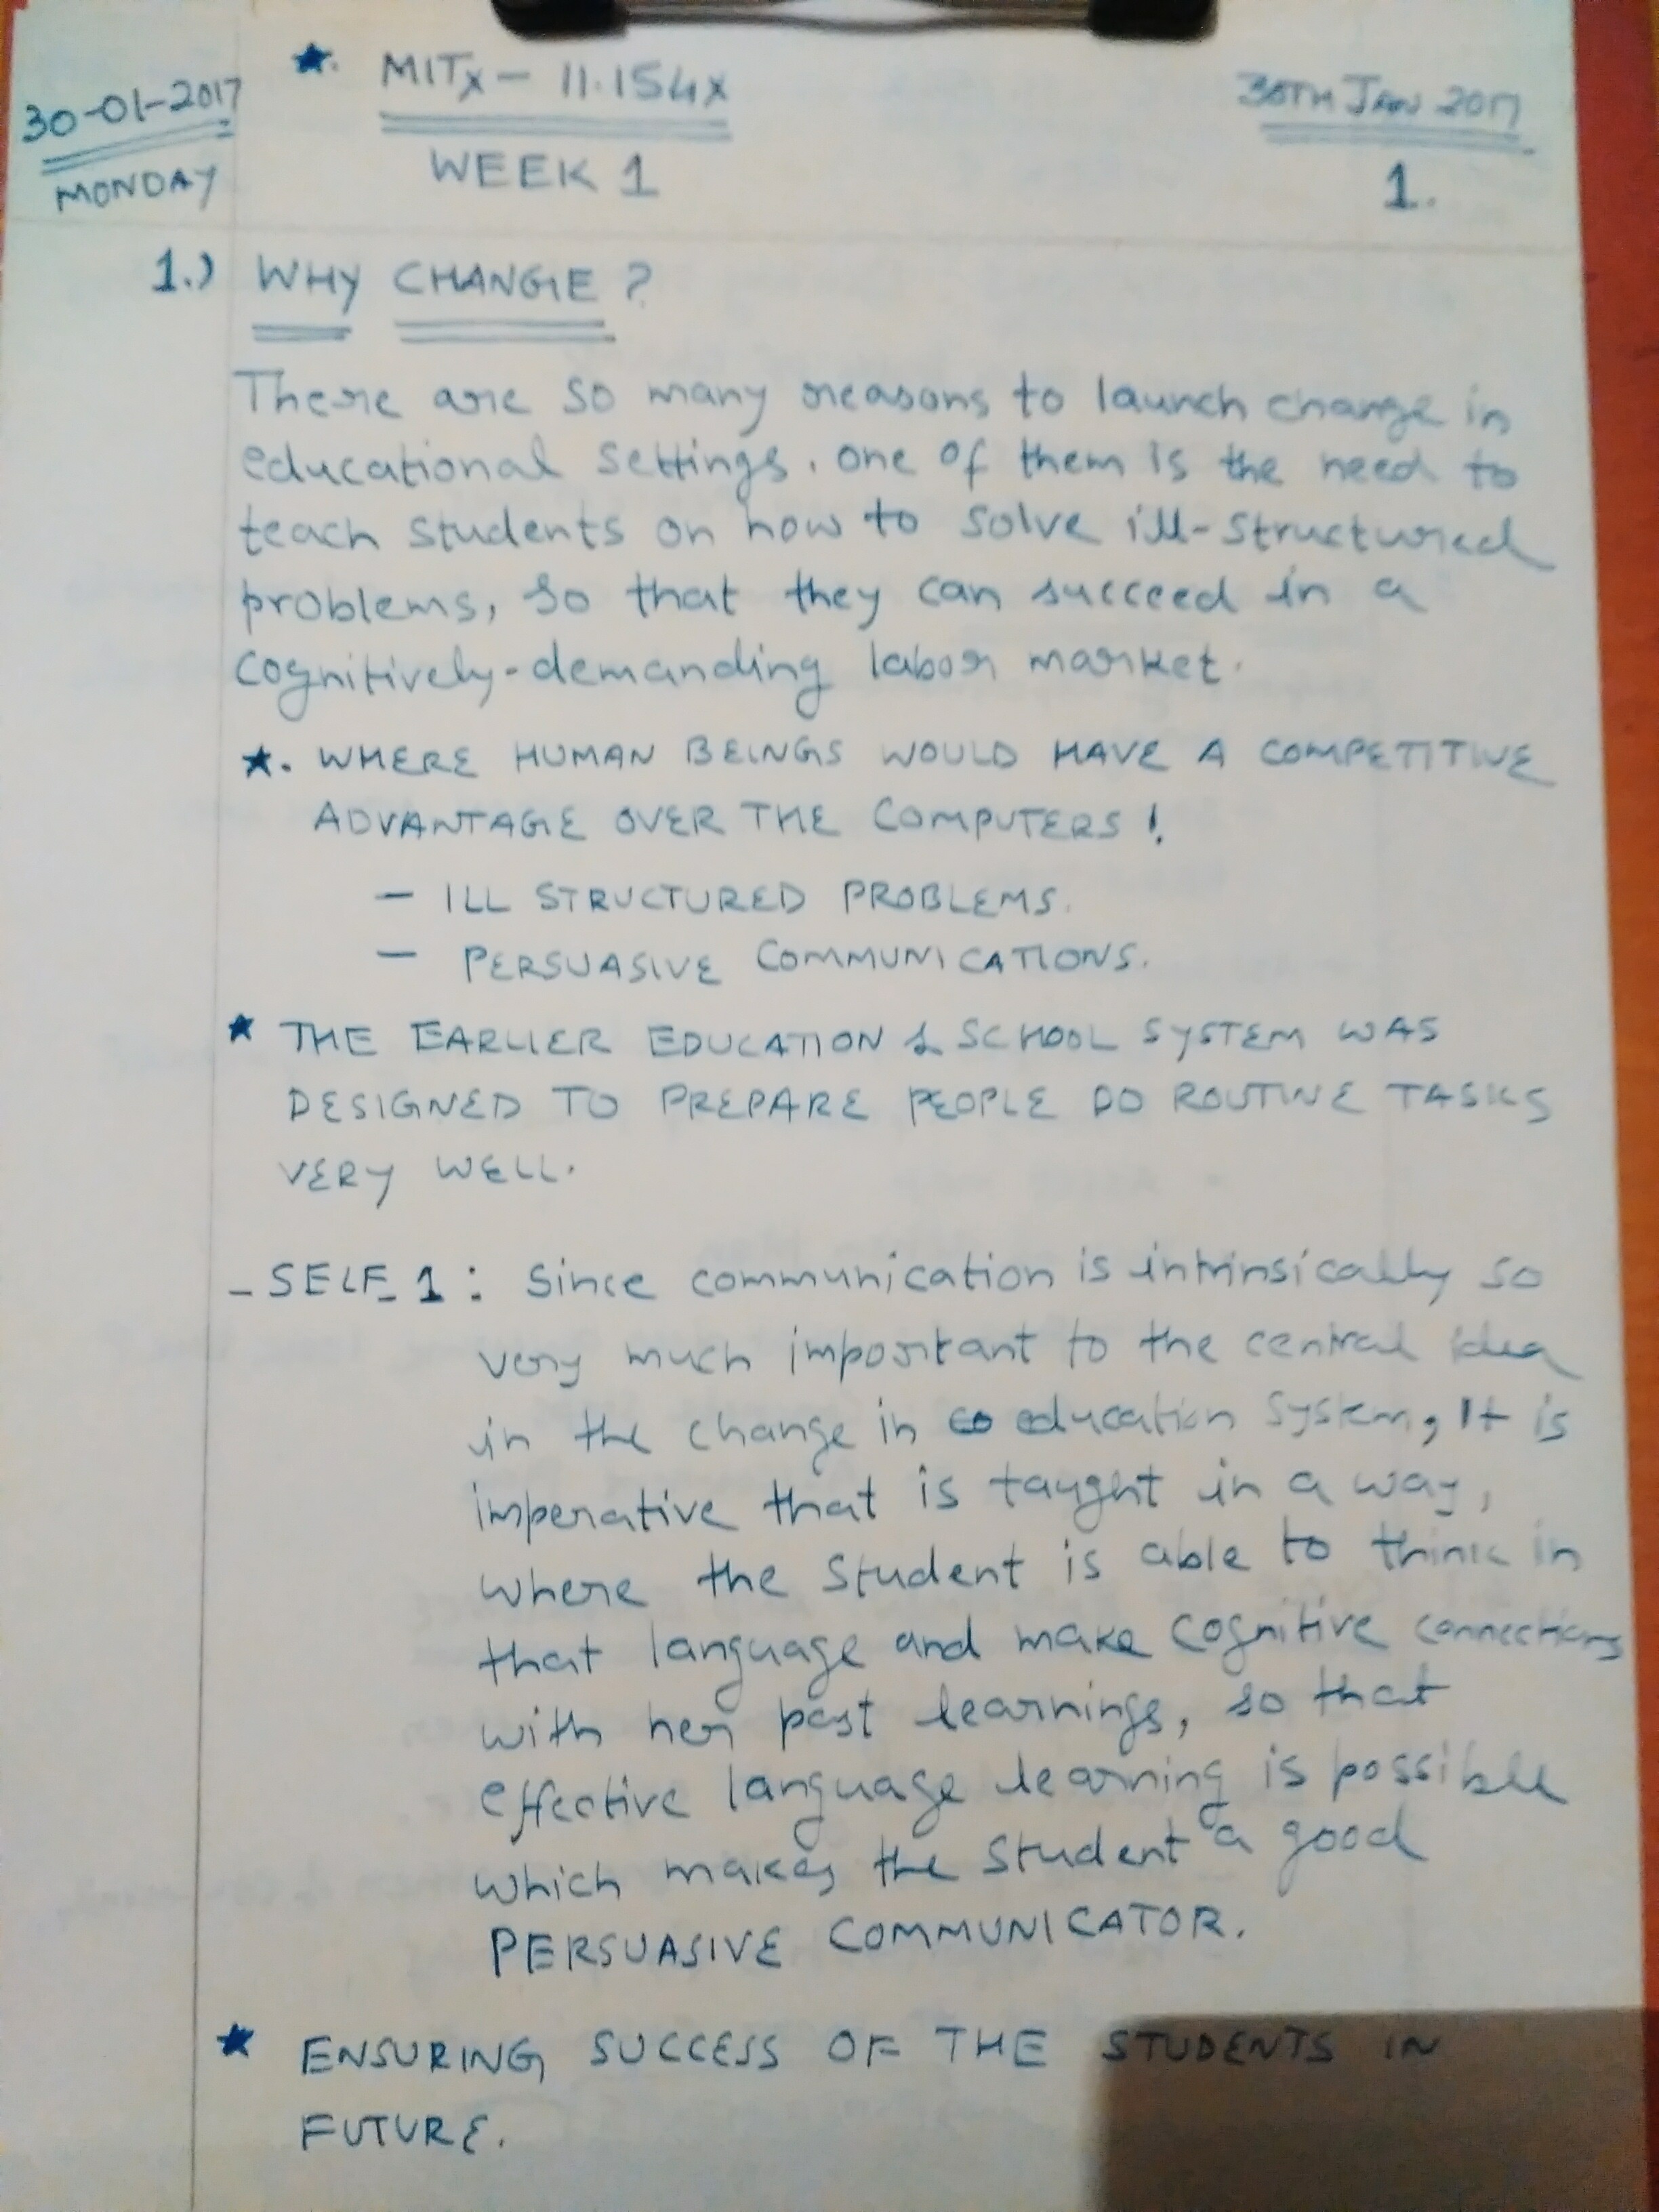 30-01-2017
MONDAY
★. MITx – 11.154x
WEEK 1
30TH JAN 2017
1.
1.) WHY CHANGE ?
There are so many reasons to launch change in
educational settings. One of them is the need to
teach students on how to solve ill-structured
problems, so that they can succeed in a
cognitively-demanding labor market.
★. WHERE HUMAN BEINGS WOULD HAVE A COMPETITIVE
ADVANTAGE OVER THE COMPUTERS !
– ILL STRUCTURED PROBLEMS.
– PERSUASIVE COMMUNICATIONS.
★ THE EARLIER EDUCATION & SCHOOL SYSTEM WAS
DESIGNED TO PREPARE PEOPLE DO ROUTINE TASKS
VERY WELL.
– SELF_1 : Since communication is intrinsically so
very much important to the central idea
in the change in education system, It is
imperative that is taught in a way,
where the student is able to think in
that language and make cognitive connections
with her past learnings, so that
effective language learning is possible
which makes the student a good
PERSUASIVE COMMUNICATOR.
★ ENSURING SUCCESS OF THE STUDENTS IN
FUTURE.